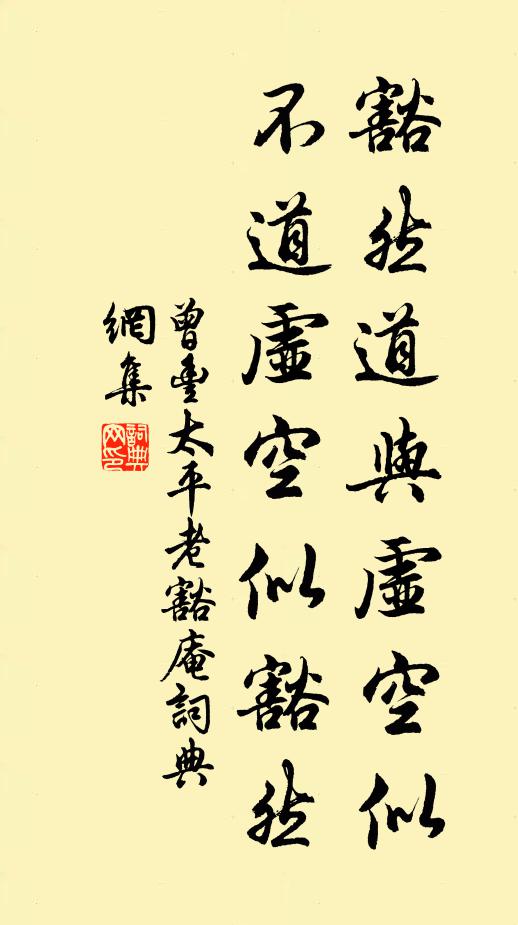 豁然道與虛空似
不道虛空似豁然
曾豐太平老豁庵詞典
網集
詞典網印